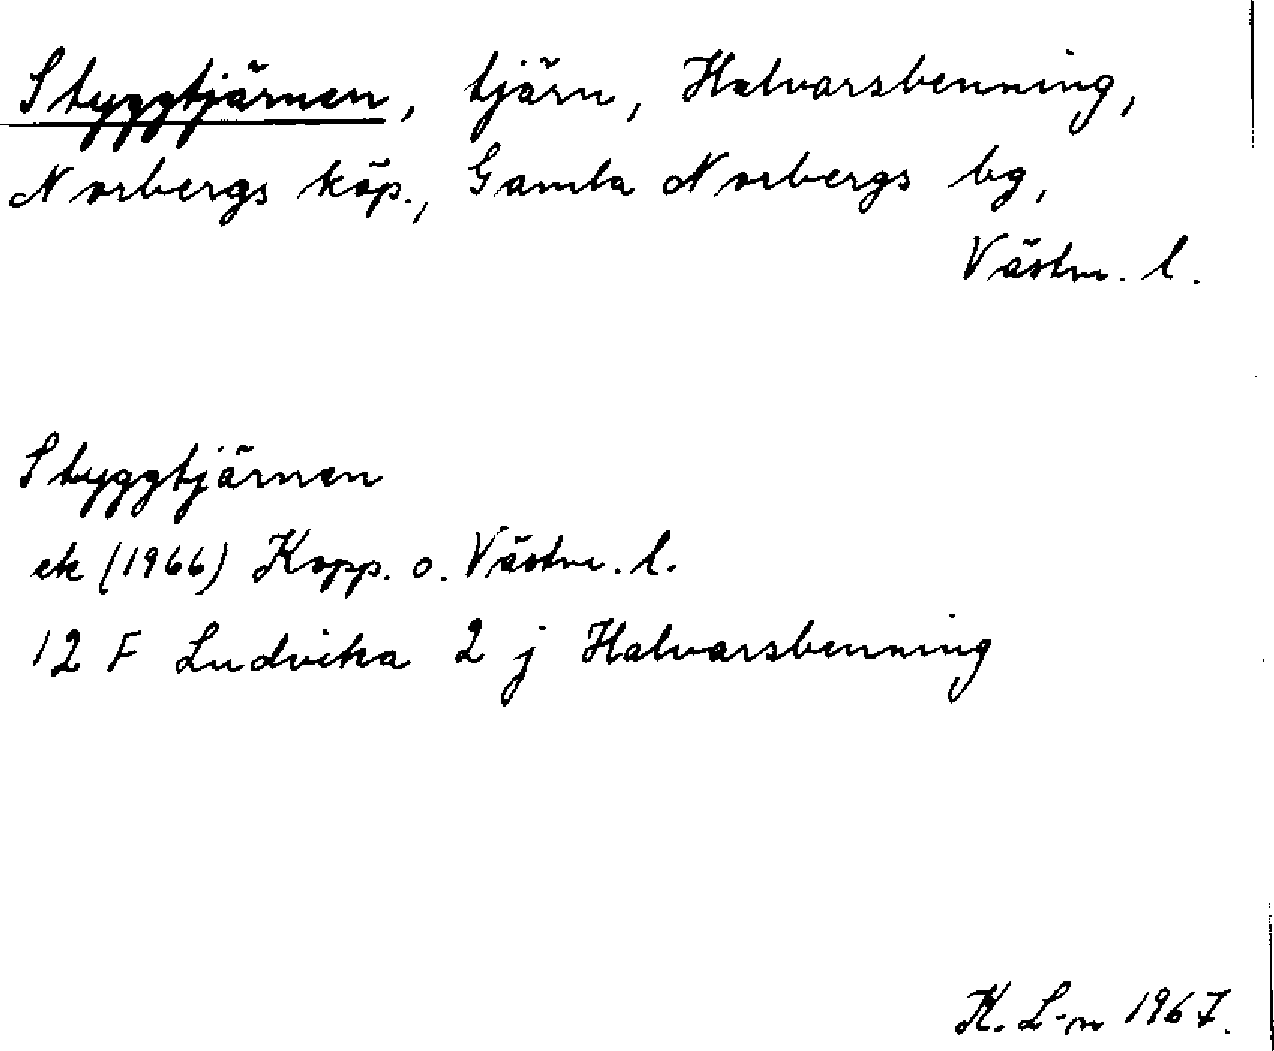 Styggtjärnen, tjärn, Halvarsbenning,
Norbergs köp., Gamla Norbergs bg,
Västm. l.
Styggtjärnen
ek (1966) Kopp. o. Västm. l.
12 F Ludvika 2 j Halvarsbenning
K. L-n 1967.